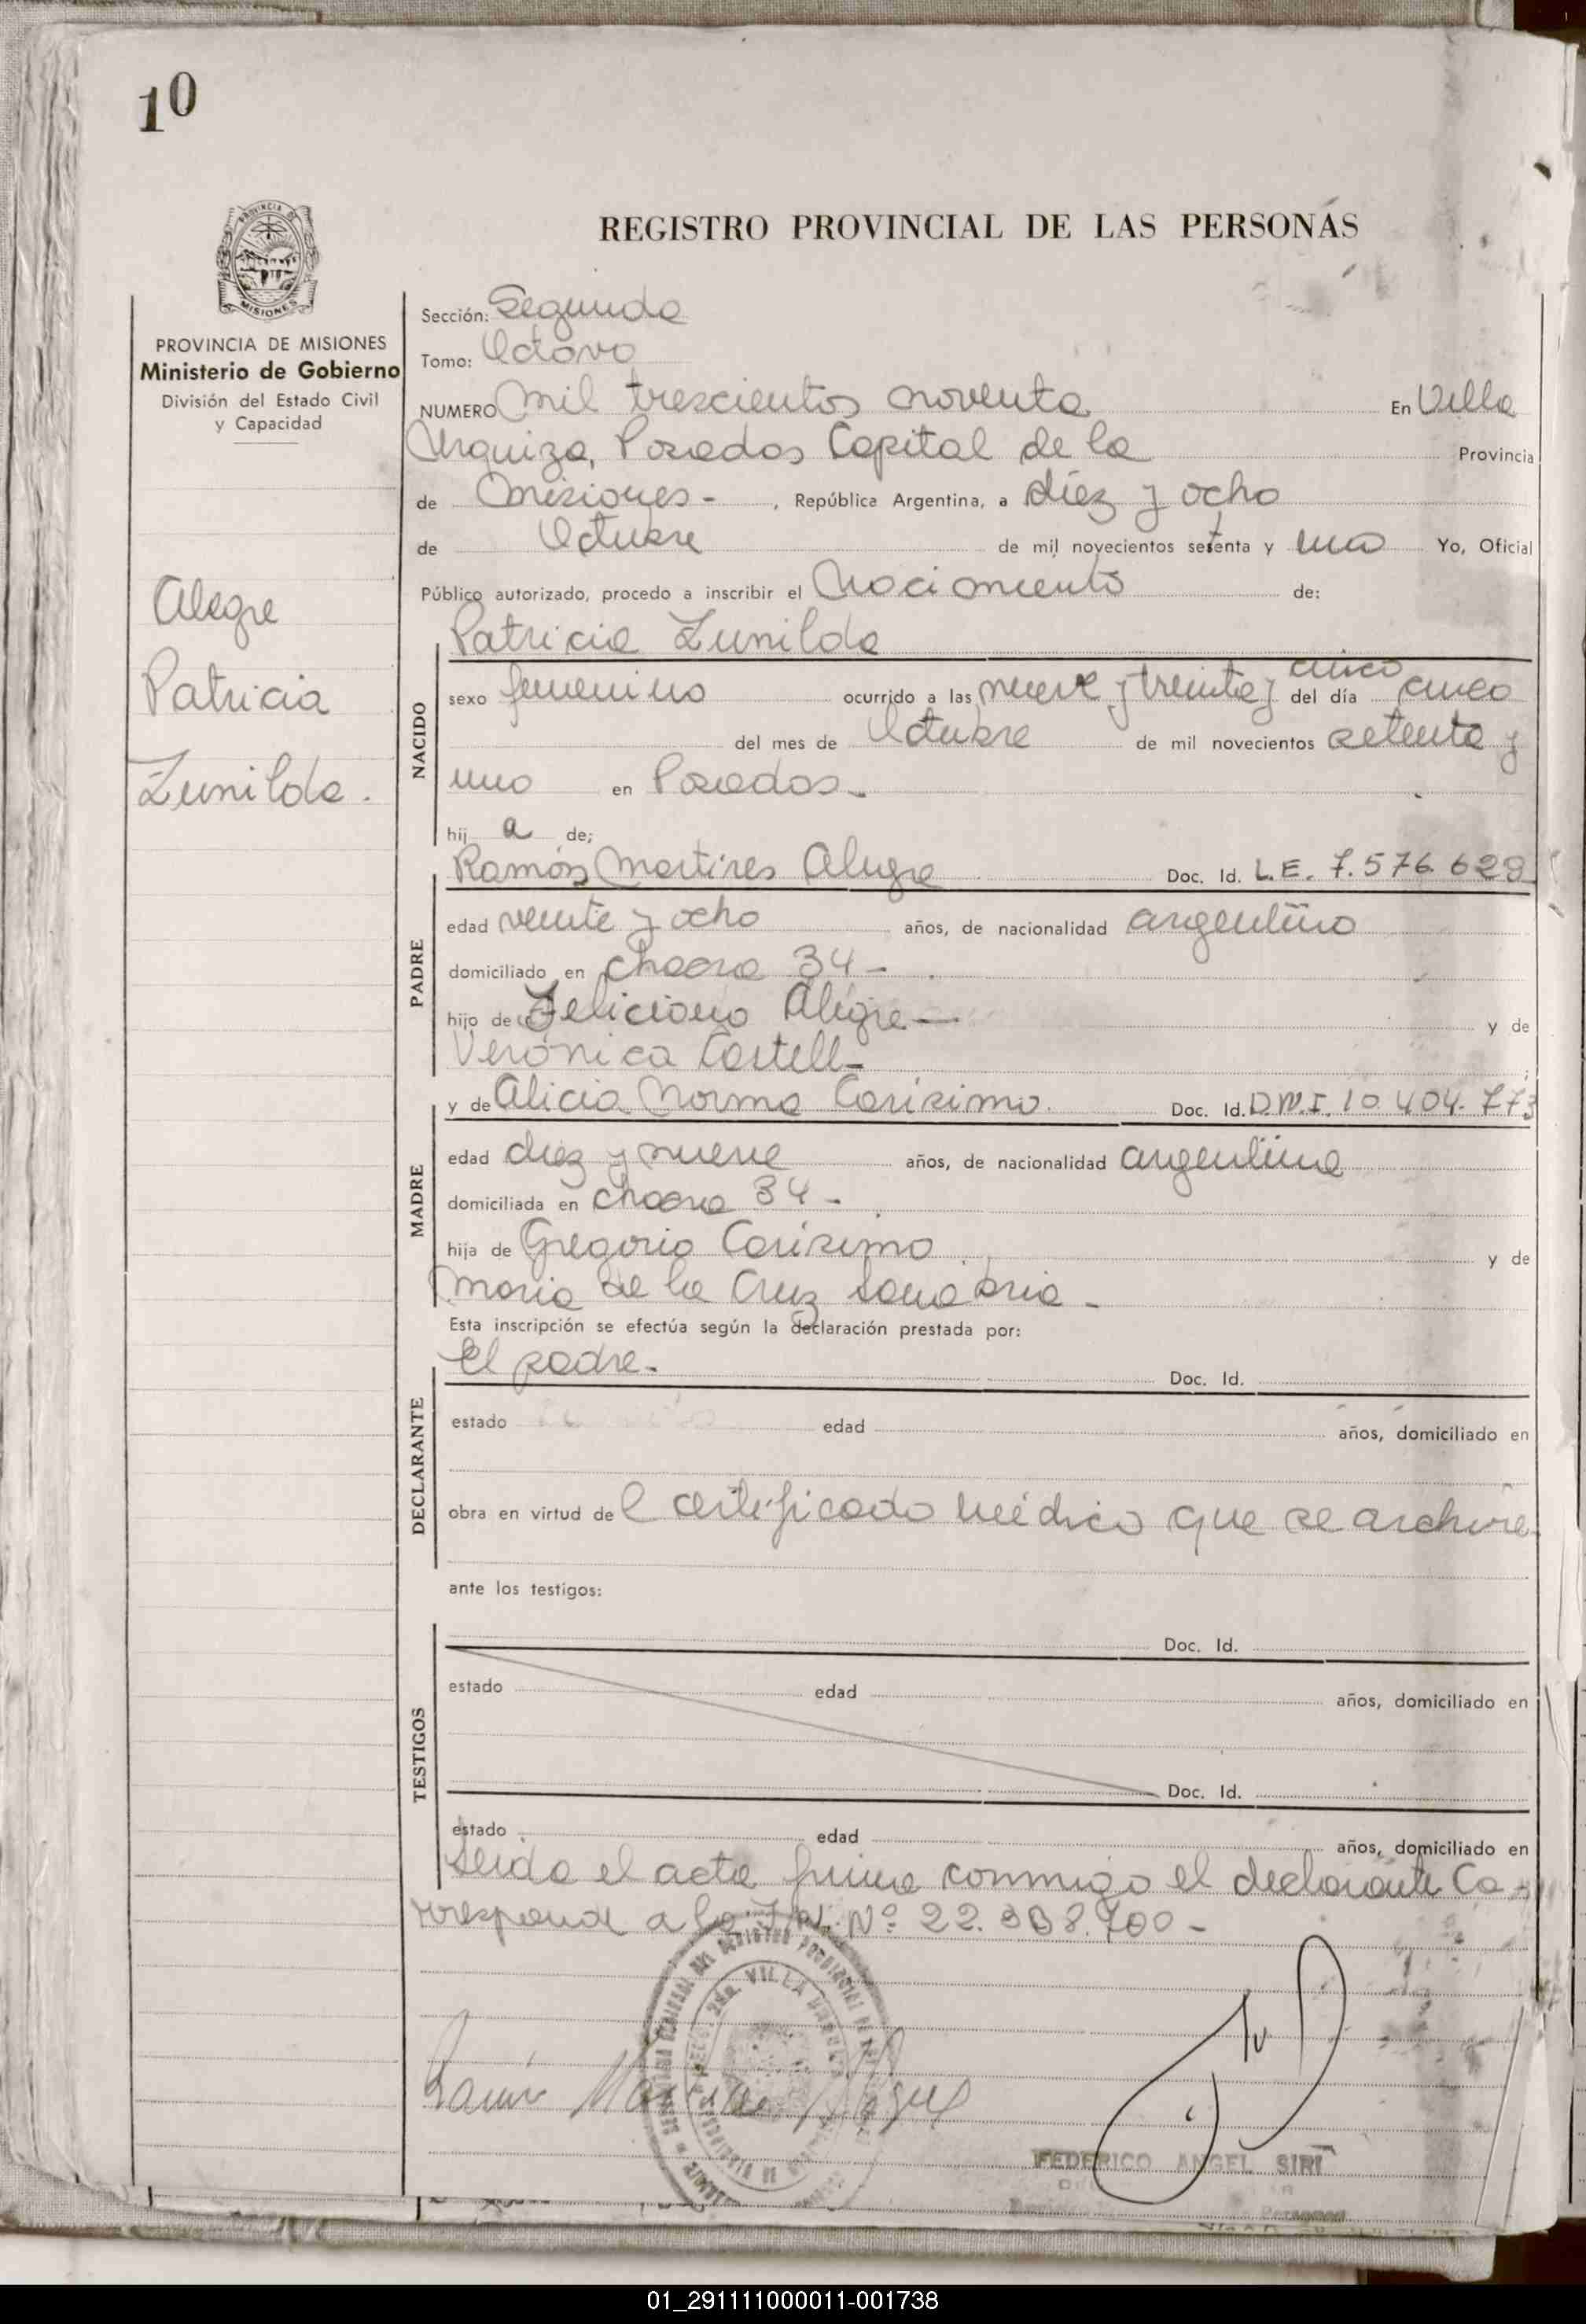 10
REGISTRO PROVINCIAL DE LAS PERSONAS
PROVINCIA DE
MISIONES
PROVINCIA DE MISIONES
Ministerio de Gobierno
División del Estado Civil
y Capacidad
Alegre
Patricia
Zunilda.
Sección: Segunda
Tomo: Octavo
NUMERO mil trescientos noventa En Villa
Urquiza, Posadas Capital de la Provincia
de Misiones - , República Argentina, a diez y ocho
de Octubre de mil novecientos setenta y uno Yo, Oficial
Público autorizado, procedo a inscribir el Nacimiento de:
NACIDO
Patricia Zunilda
sexo femenino ocurrido a las nueve y treinta y cinco del día cinco
del mes de Octubre de mil novecientos setenta y
uno en Posadas.-
hij a de;
PADRE
Ramón Martires Alegre Doc. Id. L.E. 7.576.629
edad veinte y ocho años, de nacionalidad argentino
domiciliado en chacra 34 -
hijo de Feliciano Alegre - y de
Verónica Castell -
MADRE
y de Alicia Norma Carísimo. Doc. Id. D.N.I. 10.404.773
edad diez y nueve años, de nacionalidad argentina
domiciliada en chacra 34 -
hija de Gregorio Carísimo y de
Maria de la Cruz -
Esta inscripción se efectúa según la declaración prestada por:
DECLARANTE
El padre. Doc. Id.
estado edad años, domiciliado en
obra en virtud del certificado médico que se archiva
ante los testigos:
TESTIGOS
Doc. Id.
estado edad años, domiciliado en
Doc. Id.
estado edad años, domiciliado en
Leida el acta firma conmigo el declarante Co-
rresponde a la Nº 22.
VILLA
Ramón Alegre
FEDERICO ANGEL SIRI
01_291111000011-001738